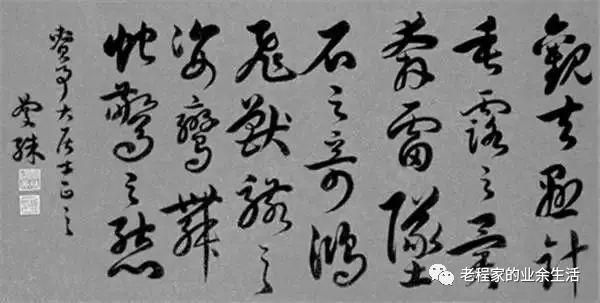 觀夫懸針
垂露之異
奔雷墜
石之奇鴻
飛獸駭之
姿鸞舞
蛇驚之態
大居士正之
曼殊
老程家的业余生活